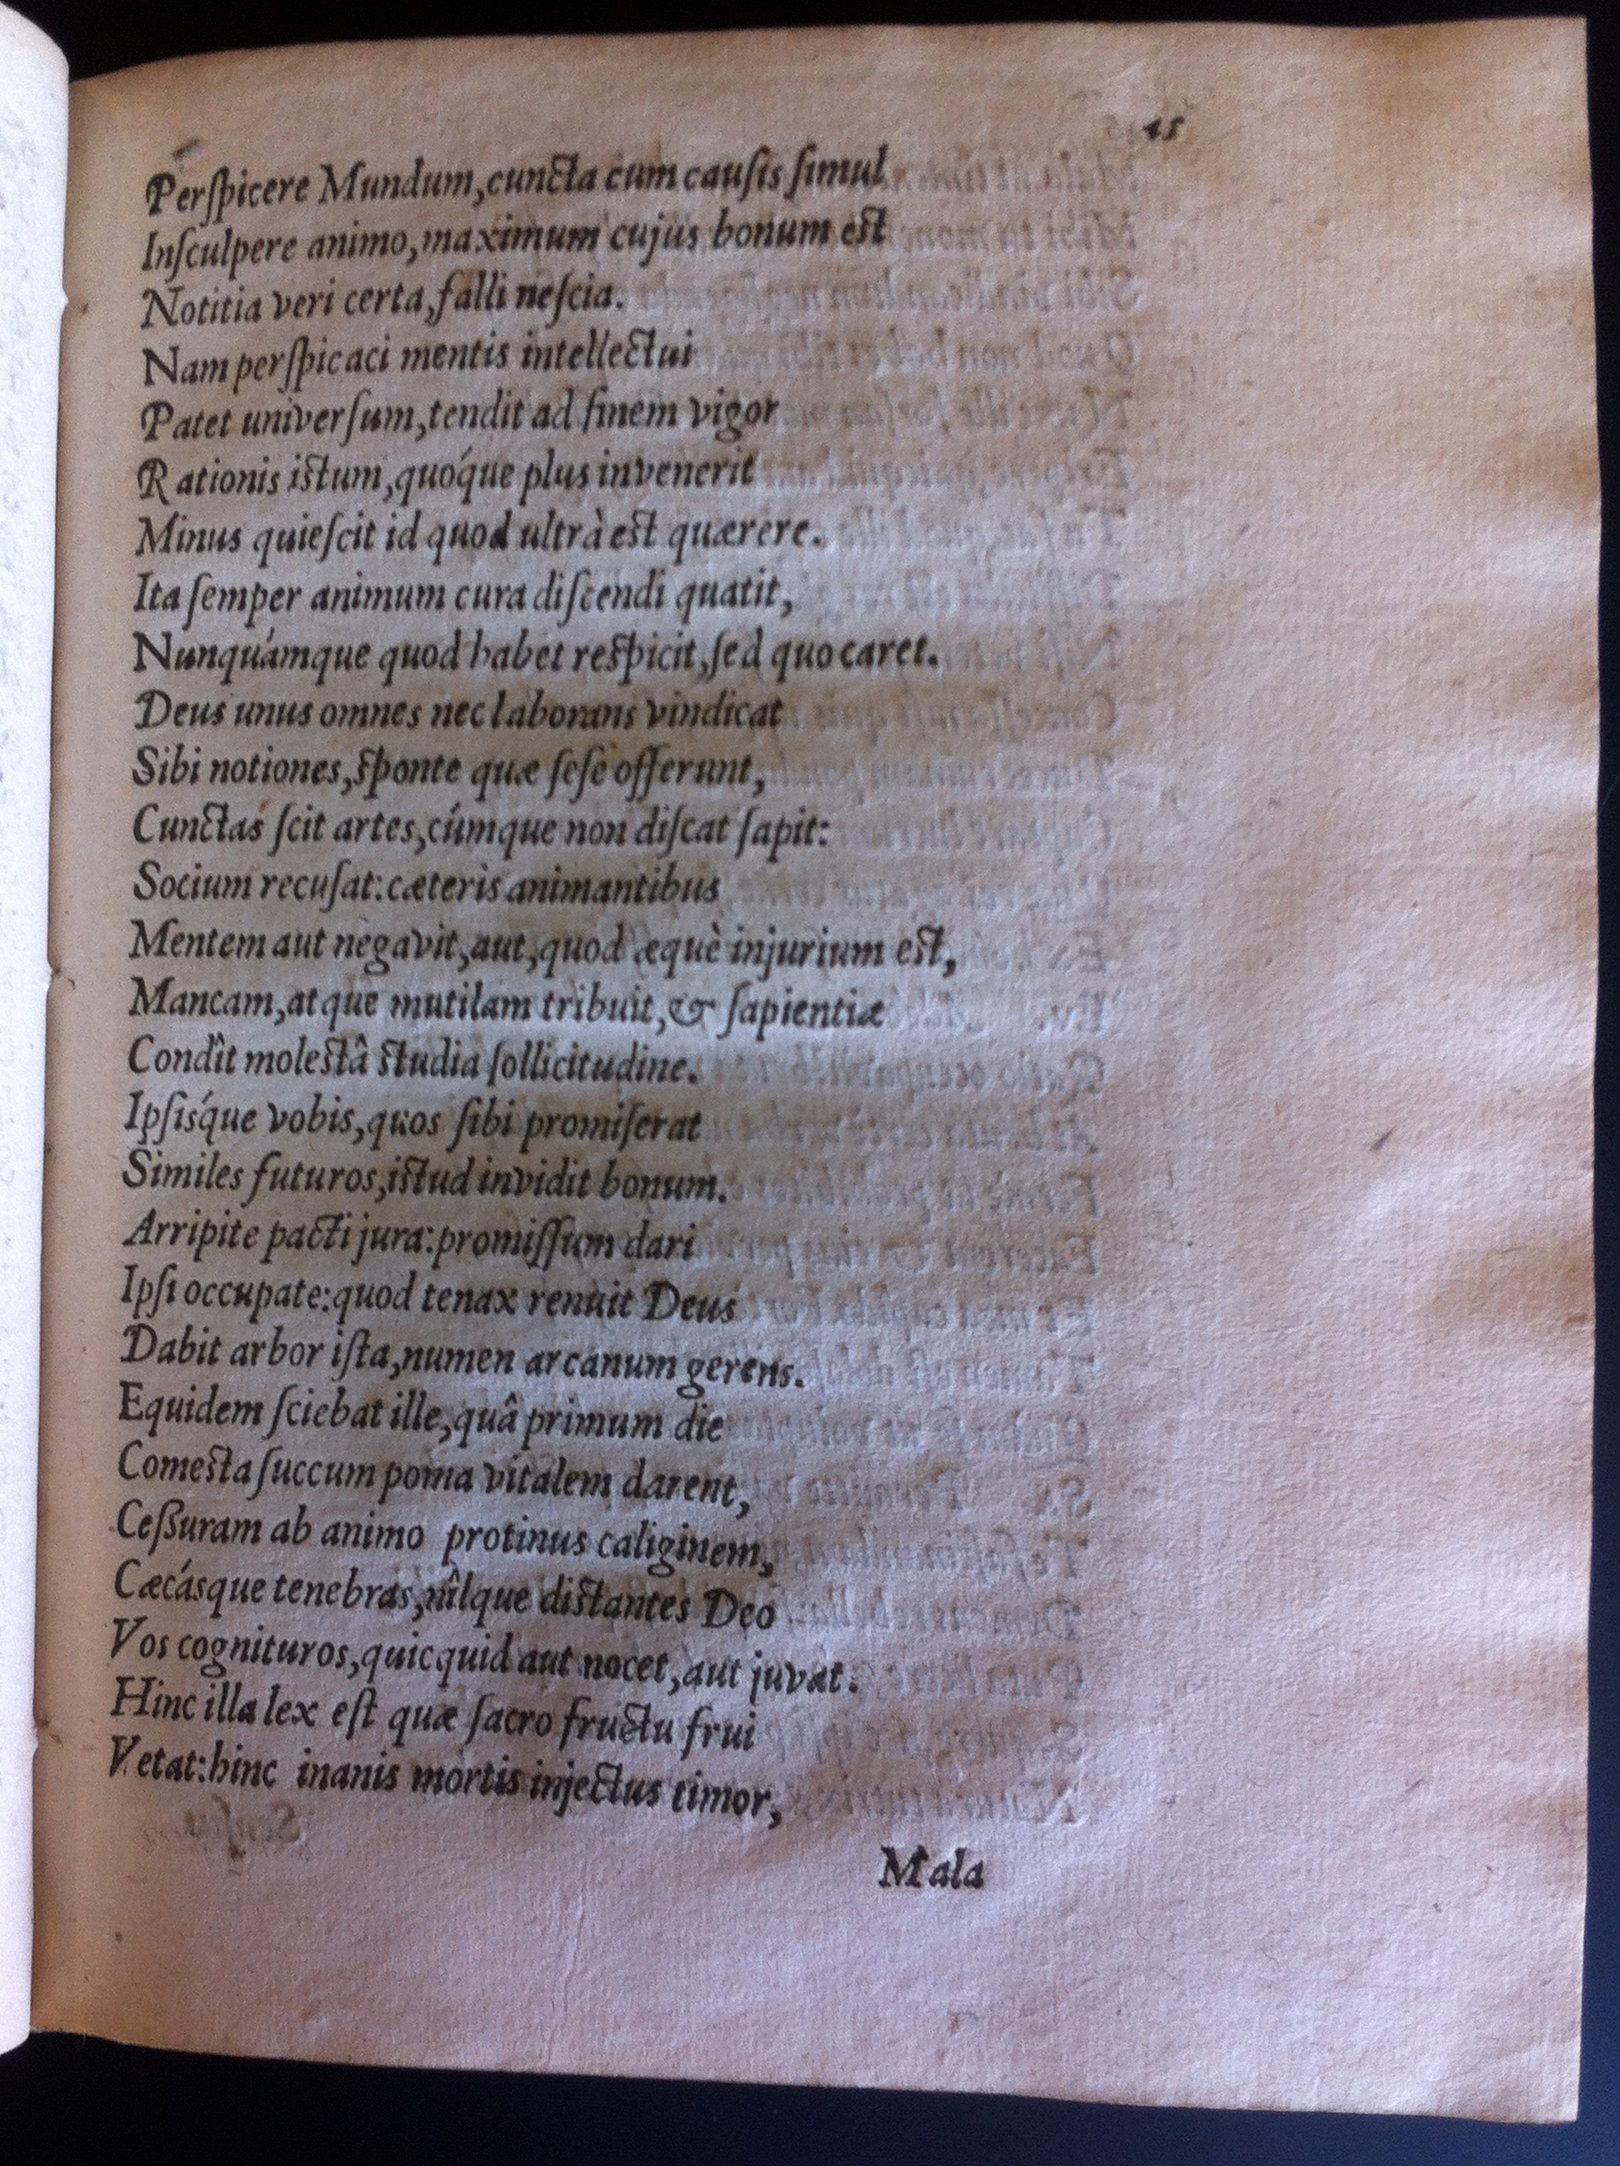 45
Perſpicere Mundum, cuncta cum cauſis ſimul
Inſculpere animo, maximum cujus bonum est
Notitia veri certa, falli neſcia.
Nam perſpicaci mentis intellectui
Patet univerſum, tendit ad finem vigor
Rationis istum, quóque plus invenerit
Minus quieſcit id quod ultrà est quærere.
Ita ſemper animum cura diſcendi quatit,
Nunquámque quod habet respicit, ſed quo caret.
Deus unus omnes nec laborans vindicat
Sibi notiones, sponte quæ ſeſe offerunt,
Cunctas ſcit artes, cúmque non diſcat ſapit:
Socium recuſat: cæteris animantibus
Mentem aut negavit, aut, quod æquè injurium est,
Mancam, atque mutilam tribuit, & ſapientiæ
Condît molestâ studia ſollicitudine.
Ipſiśque vobis, quos ſibi promiſerat
Similes futuros, istud invidit bonum.
Arripite pacti jura: promiſſum dari
Ipſi occupate: quod tenax renuit Deus
Dabit arbor iſta, numen arcanum gerens.
Equidem ſciebat ille, quâ primum die
Comesta ſuccum poma vitalem darent,
Ceßuram ab animo protinus caliginem,
Cæcásque tenebras, nîlque distantes Deo
Vos cognituros, quicquid aut nocet, aut juvat.
Hinc illa lex eſt quæ ſacro fructu frui
Vetat: hinc inanis mortis injectus timor,
Mala